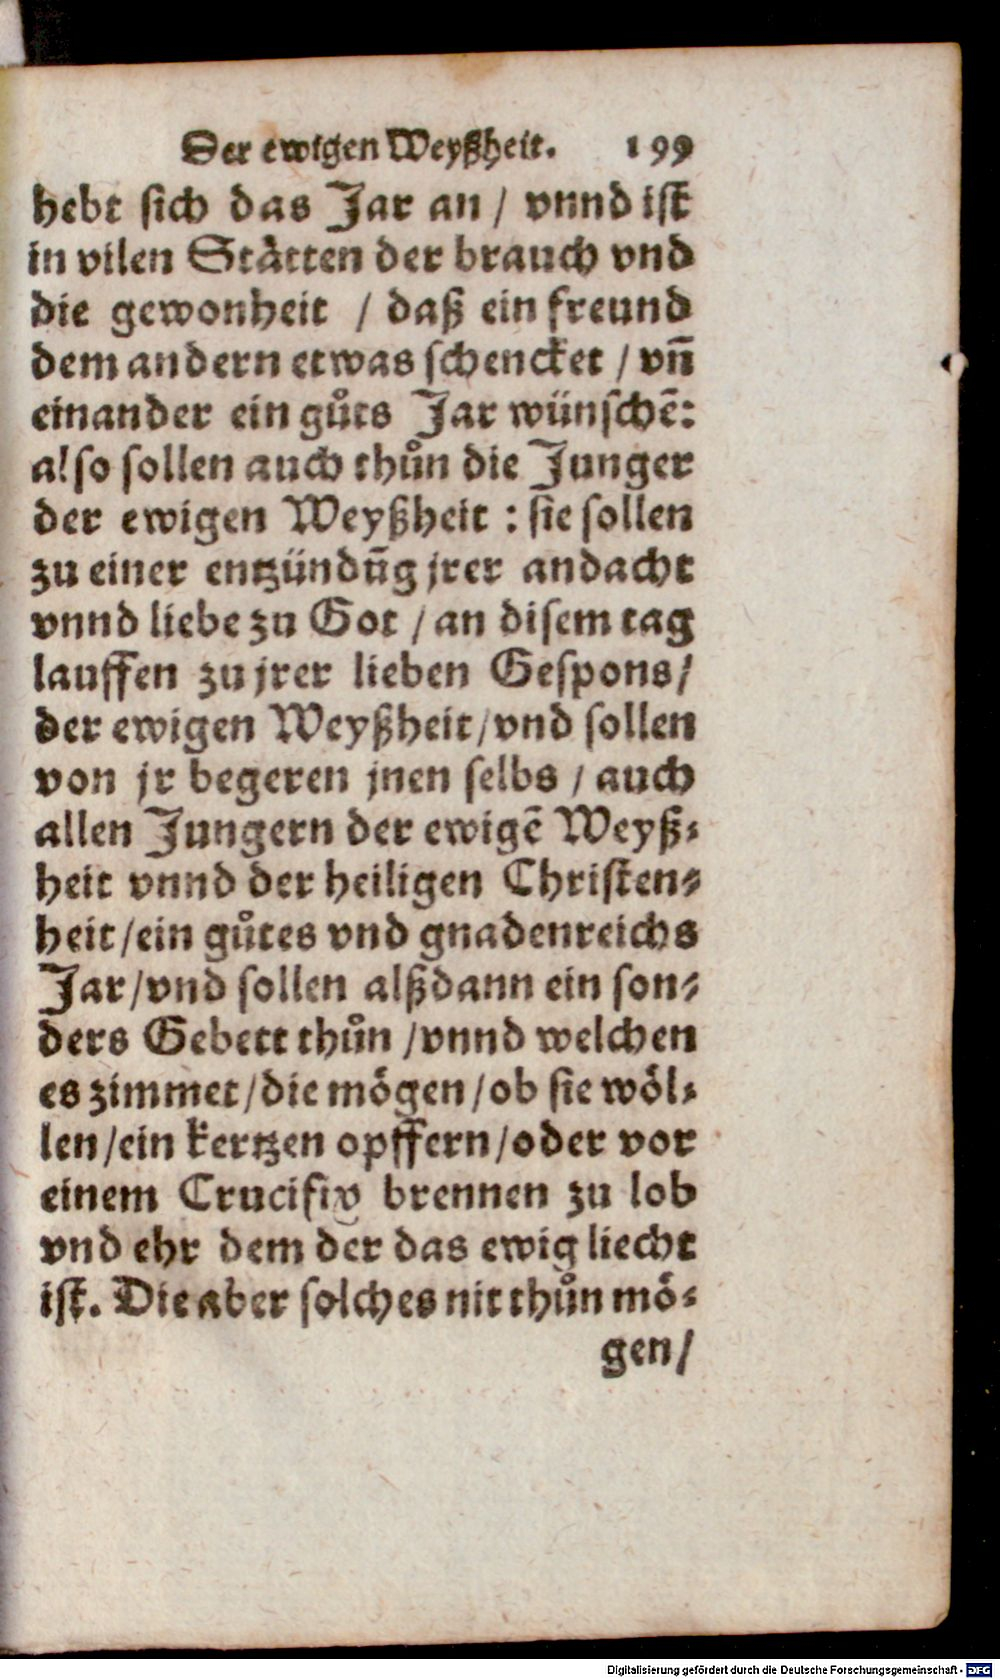 Der ewigen Weyßheit. 199
hebt sich das Jar an / vnnd ist
in vilen Stätten der brauch vnd
die gewonheit / daß ein freund
dem andern etwas schencket / vn̄
einander ein gůts Jar wünschē:
also sollen auch thůn die Junger
der ewigen Weyßheit : sie sollen
zu einer entzündūg jrer andacht
vnnd liebe zu Got / an disem tag
lauffen zu jrer lieben Gespons /
der ewigen Weyßheit / vnd sollen
von jr begeren jnen selbs / auch
allen Jungern der ewigē Weyß-
heit vnnd der heiligen Christen-
heit / ein gůtes vnd gnadenreichs
Jar / vnd sollen alßdann ein son-
ders Gebett thůn / vnnd welchen
es zimmet / die mögen / ob sie wöl-
len / ein kertzen opffern / oder vor
einem Crucifix brennen zu lob
vnd ehr dem der das ewig liecht
ist. Die aber solches nit thůn mö-
gen /
Digitalisierung gefördert durch die Deutsche Forschungsgemeinschaft - DFG